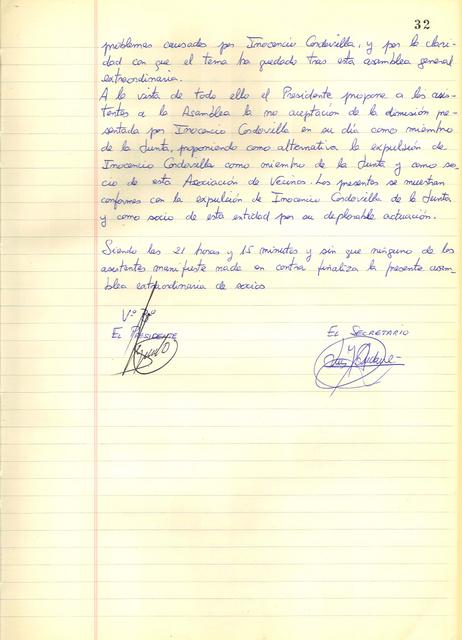 32
problemas causados por Inocencio Cordevilla, y por la clari-
dad con que el tema ha quedado tras esta asamblea general
extraordinaria.
A la vista de todo ello el Presidente propone a los asis-
tentes a la Asamblea la no aceptación de la demisión pre-
sentada por Inocencio Cordevilla en su día como miembro
de la Junta, proponiendo como alternativa la expulsión de
Inocencio Cordevilla como miembro de la Junta y como so-
cio de esta Asociación de Vecinos. Los presentes se muestran
conformes con la expulsión de Inocencio Cordevilla de la Junta
y como socio de esta entidad por su deplorable actuación.
Siendo las 21 horas y 15 minutos y sin que ninguno de los
asistentes manifieste nada en contra finaliza la presente asam-
blea extraordinaria de socios
Vº Bº
EL PRESIDENTE
EL SECRETARIO